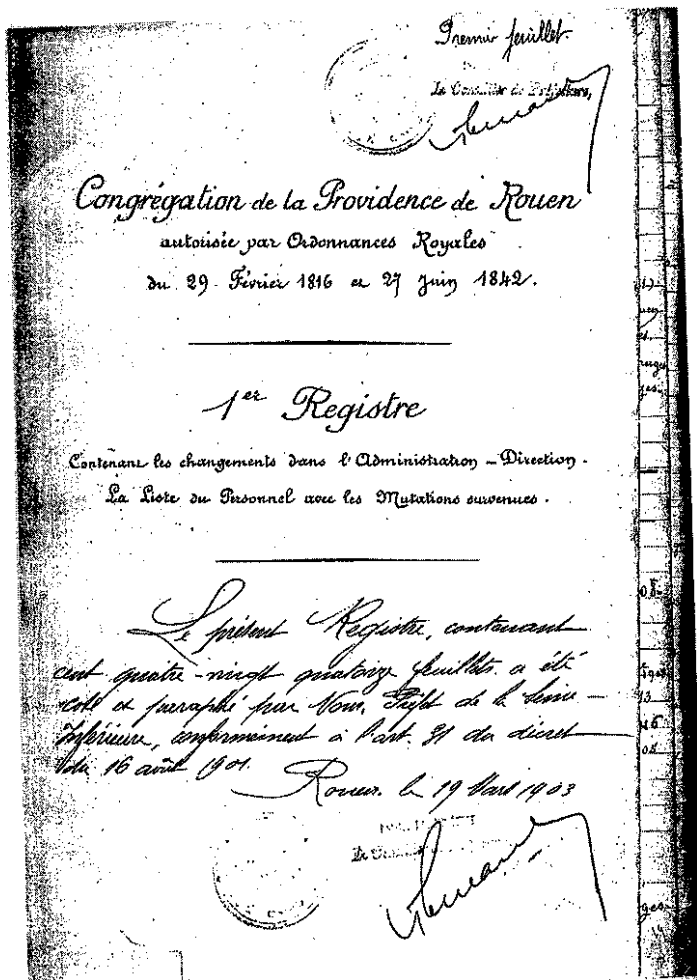 Premier feuillet
Le Conseiller de Préfecture,
Congrégation de la Providence de Rouen
autorisée par Ordonnances Royales
du 29 Février 1816 et 27 Juin 1842.
1er Registre
Contenant les changements dans l'Administration - Direction.
La Liste du Personnel avec les Mutations survenues.
Le présent Registre, contenant
cent quatre-vingt quatorze feuillets a été
coté et paraphé par Nous, Préfet de la Seine-
Inférieure, conformément à l'art. 31 du décret
du 16 août 1901.
Rouen, le 19 Mars 1903